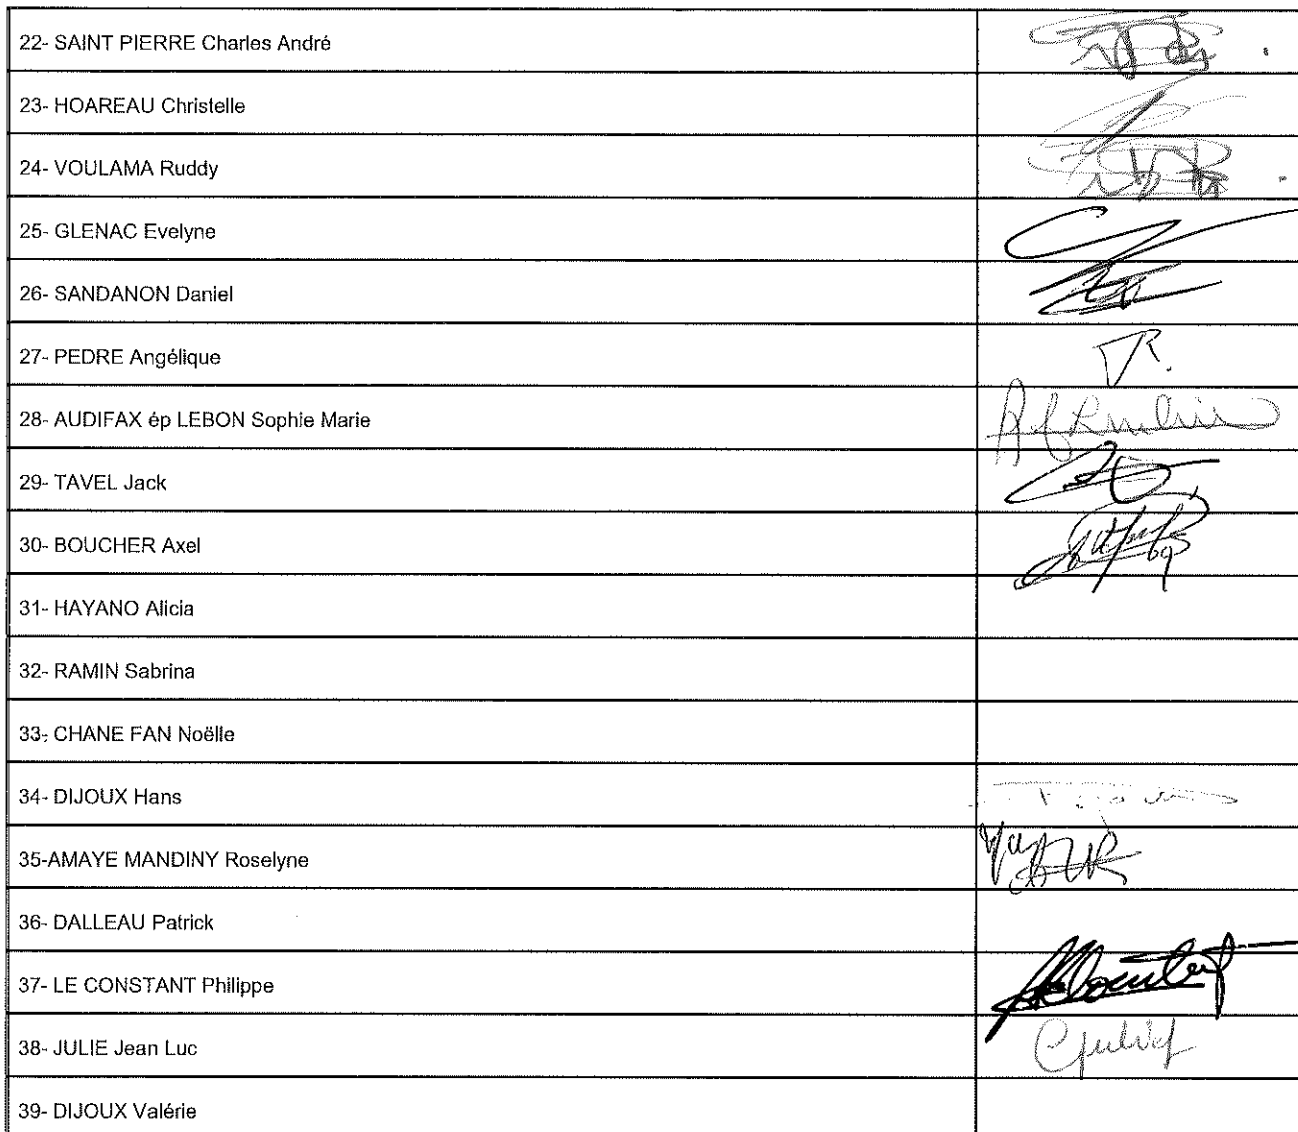 22- SAINT PIERRE Charles André
23- HOAREAU Christelle
24- VOULAMA Ruddy
25- GLENAC Evelyne
26- SANDANON Daniel
27- PEDRE Angélique
28- AUDIFAX ép LEBON Sophie Marie
29- TAVEL Jack
30- BOUCHER Axel
31- HAYANO Alicia
32- RAMIN Sabrina
33- CHANE FAN Noëlle
34- DIJOUX Hans
35-AMAYE MANDINY Roselyne
36- DALLEAU Patrick
37- LE CONSTANT Philippe
38- JULIE Jean Luc
39- DIJOUX Valérie